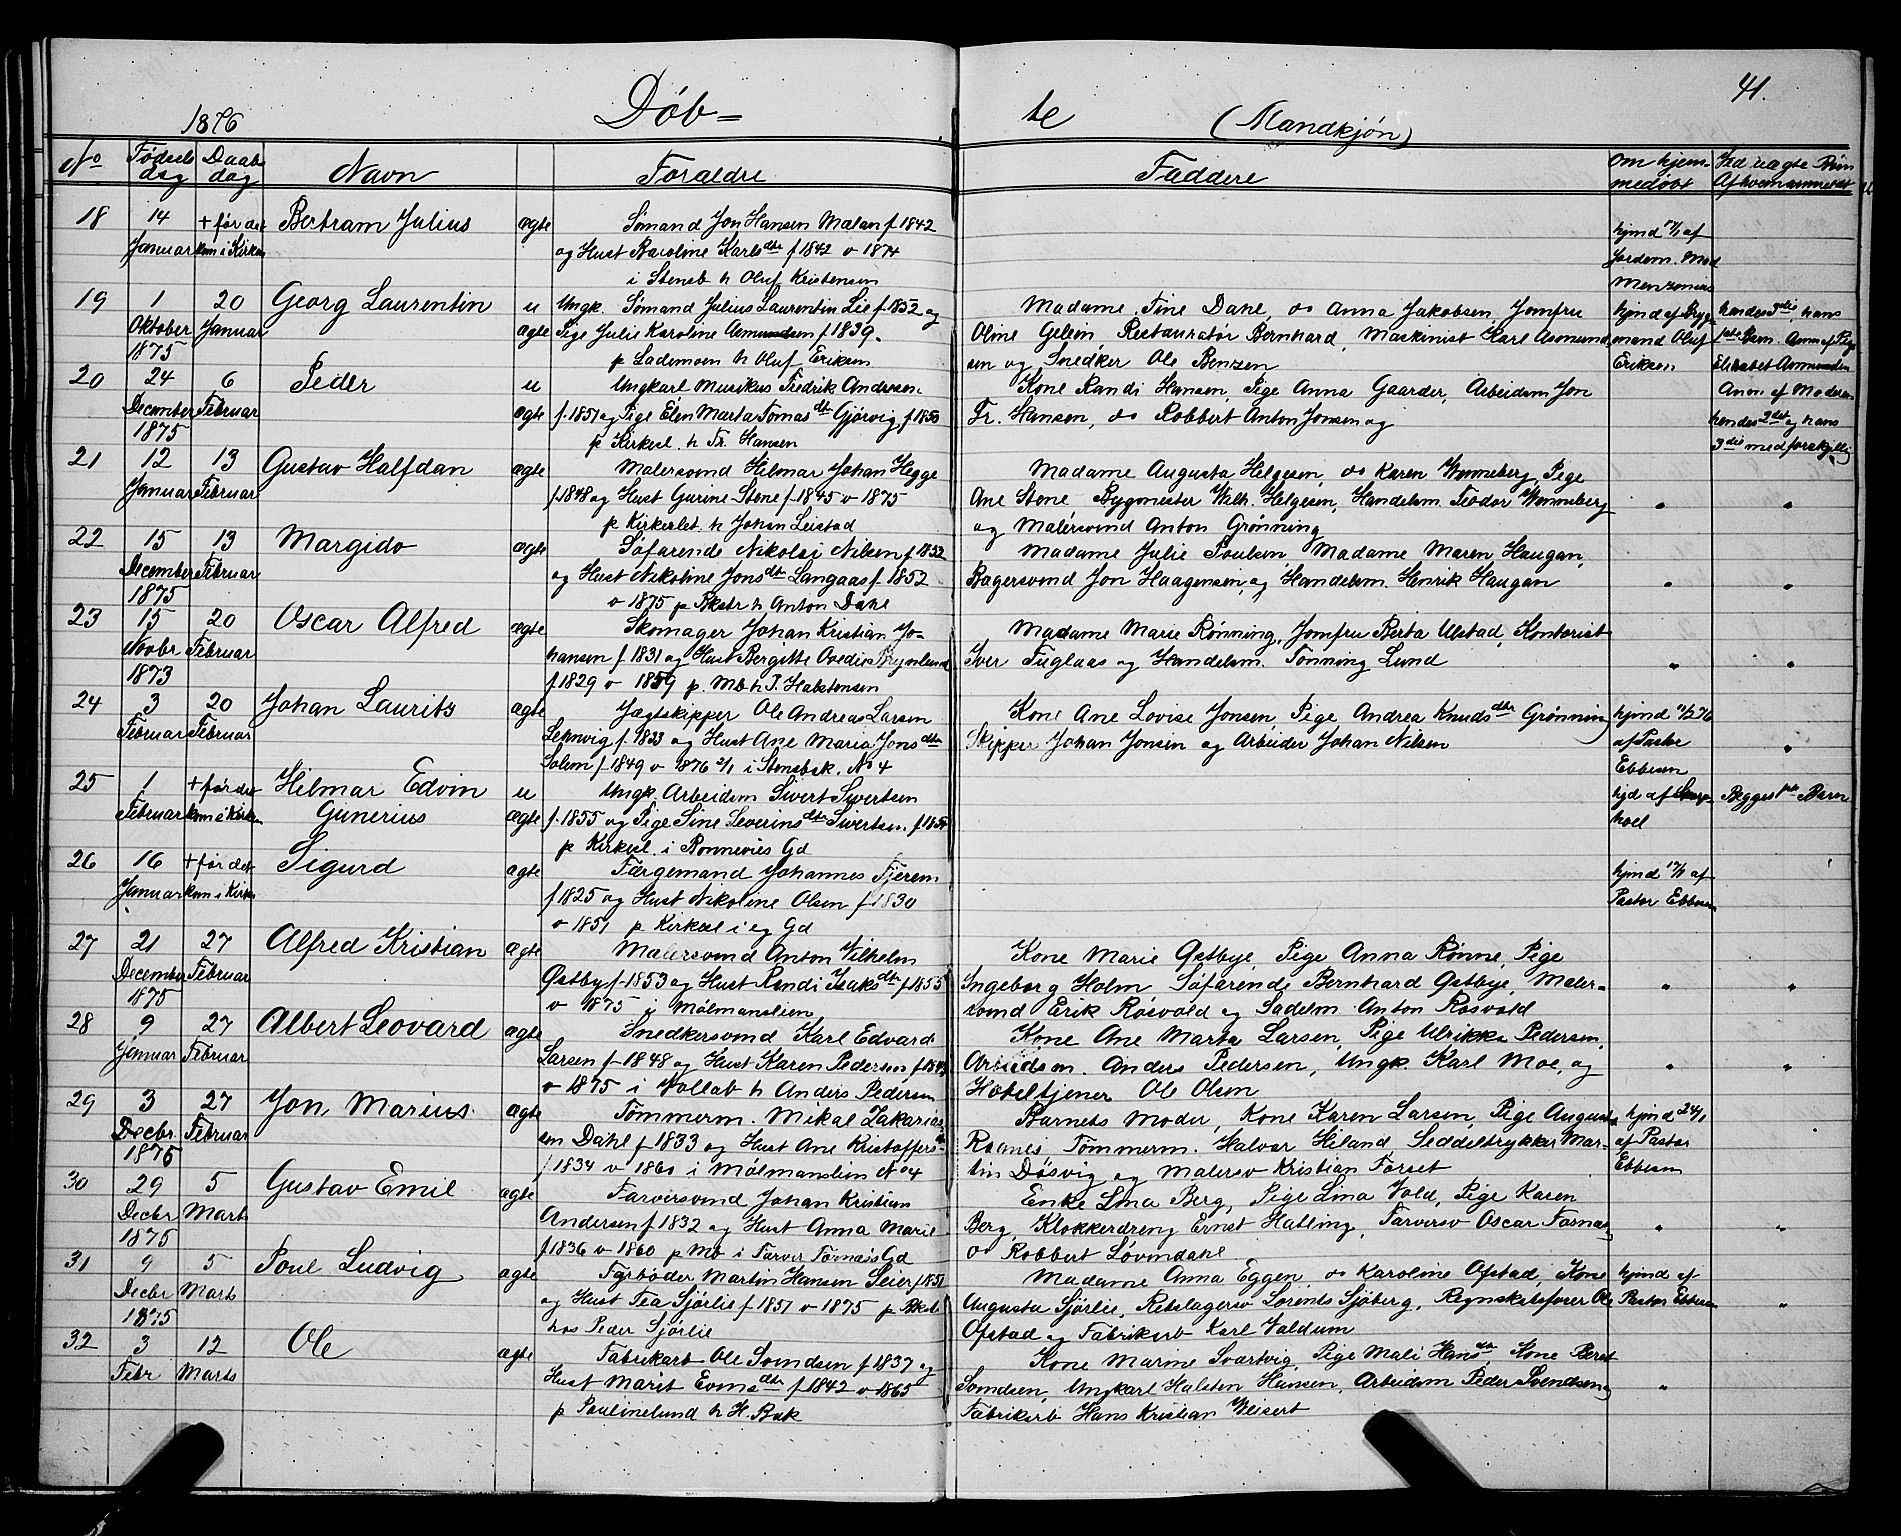 41.
1876 Døb= te (Mandkjøn)
No Fødselsdag Daabsdag Navn Forældre Faddere Om hjemmedøbt Ved uægte Børn
18 14 Januar + før det kom i Kirken Bertram Julius ægte Sømand Jon Hansen Mælan f 1842
og Hust Karoline Karlsdtr f 1842 v 1874
i Stensb h Oluf Kristensen
hjmd 17/1 af
Jordem. Mad
19 1 Oktober 1875 20 Januar Georg Laurentin uægte Ungk. Sømand Julius Laurentin Lie f 1852 og
Pige Julie Karoline Asmundsen f 1839.
p Lademoen h Oluf Eriksen
Madame Tine Dahl, do Anna Jakobsen, Jomfru
Oline Gelein Restauratør Bernhard, Maskinist Karl Asmund
sen og Snedker Ole Bentzen
hjmd af Bryg
mand Oluf
Eriksen
hendes 3die, hans
1ste Barn. Anm af Pige
Elisabet Asmundsen
20 24 December 1875 6 Februar Peder uægte Ungkarl Musikus Fredrik Andresen
f. 1851 og Pige Elen Marta Tomasdtr Gjørvig f 1850
p Kirkesl. h Fr. Hansen
Kone Randi Hansen, Pige Anna Gaarder, Arbeidsm Jon
Fr. Hansen, do Robbert Anton Jonsen og
Anm. af Moderen
hendes 2det og hans
3die med forskjellig
21 12 Januar 13 Februar Gustav Halfdan ægte Malersvend Hilmar Johan Hegge
f. 1848 og Hust Gurine Stene f 1845 v 1875
p Kirkeslet. h Johan Leistad
Madame Augusta Helgesen, do Karen Wenneberg, Pige
Ane Stene Bygmester Wilh. Helgesen, Handelsm. Teodor Wenneberg
og Malersvend Anton Grønning
22 15 December 1875 13 Februar Margido ægte Søfarende Nikolai Nilsen f 1852
og Hust Nikoline Jonsdtr Langaas f. 1852
v 1875 p Bkstr h Anton Dahl
Madame Julie Poulsen, Madame Maren Haugan,
Bagersvend Jon Haagensen, og Handelsm. Henrik Haugan
23 15 Novbr 1873 20 Februar Oscar Alfred ægte Skomager Johan Kristian Jo-
hansen f 1831 og Hust Bergitte Ovedie Brynlund
f 1829 v 1859 p. Mb h P. Halstensen
Madame Marie Rønning, Jomfru Berta Ulstad, Kontorist
Iver Fuglaas og Handelsm. Tønning Lund
24 3 Februar 20 Februar Johan Laurits ægte Jægtskipper Ole Andreas Larsen
Leknvig f. 1833 og Hust Ane Maria Jonsdtr
Solem f 1849 v 1876 2/1 i Stensbak. No 4
Kone Ane Lovise Jonsen, Pige Andrea Knudsdtr Grønning
Skipper Johan Jonsen og Arbeider Johan Nilsen
hjmd 11/2 76
af Pastor
Ebbesen
25 1 Februar + før det kom i Kirken Hilmar Edvin
Gunerius uægte Ungk. Arbeidsm Sivert Sivertsen
f. 1855 og Pige Sine Severinsdtr Sivertsen. f 1850
p Kirkesl. i Ronnevies Gd
Begges 1ste Barn
26 16 Januar + før det kom i Kirken Sigurd ægte Færgemand Johannes Fjerem
f 1825 og Hust Nikoline Olsen f 1830
v 1851 p Kirkesl i eg Gd
hjmd 17/1 af
Pastor Ebbesen
27 21 December 1875 27 Februar Alfred Kristian ægte Malersvend Anton Vilhelm
Østby f. 1853 og Hust Randi Isaksdtr f 1855
v 1875 i Mølmanslien
Kone Marie Østbye, Pige Anna Rønne, Pige
Ingeborg Holm Søfarende Bernhard Østbye, Maler-
svend Erik Røsvold og Sadelm Anton Røsvold
28 9 Januar 27 Februar Albert Leovard ægte Snedkersvend Karl Edvard
Larsen f 1848 og Hust Karen Pedersen f 1848
v 1875 i Vollab h Anders Pedersen
Kone Ane Marta Larsen, Pige Ulrikke Pedersen,
Arbeidsm. Anders Pedersen, Ungk. Karl Moe, og
Hoteltjener Ole Olsen
29 3 Decbr 1875 27 Februar Jon Marius ægte Tømmerm. Mikal Zakarias-
sen Dahl f 1833 og Hust Ane Kristoffersdtr
f 1834 v 1860 i Mølmanslien No 4
Barnets Moder, Kone Karen Larsen, Pige Augusta
Raanes Tømmerm. Halvor Hiland Seddeltrykker Mar-
tin Døsvig og Malersv Kristian Forset
hjmd 24/1
af Pastor
Ebbesen
30 29 Decbr 1875 5 Marts Gustav Emil ægte Farversvend Johan Kristian
Andersen f 1832 og Hust Anna Marie
f 1836 v 1860 p Mb i Farver Tornæs Gd
Enke Lina Berg, Pige Lina Vold, Pige Karen
Berg, Klokkerdreng Ernst Hatling, Farversv Oscar Tornæs
do Robbert Løvendahl
31 9 Decbr 1875 5 Marts Poul Ludvig ægte Førbøder Martin Hansen Seier f 1851
og Hust Tea Sjørlie f 1851 v 1875 p Bkstr
hos Peder Sjørlie
Madame Anna Eggen do Karoline Ofstad, Kone
Augusta Sjørlie, Rebslagersv Lorents Sjøberg, Regnskabsfører Ole
Ofstad og Fabrikarb Karl Valdum
hjmd af
Pastor Ebbesen
32 3 Febr 12 Marts Ole ægte Fabrikarb Ole Svendsen f 1837 og
Hust Marit Evensdtr f 1842 v 1865
p Paulinelund h H. Bak
Kone Marine Svartvig, Pige Mali Hansdtr, Kone Beret
Svendsen, Ungkarl Halsten Hansen, Arbeidsm Peder Svendsen og
Fabrikarb Hans Kristian Weisert